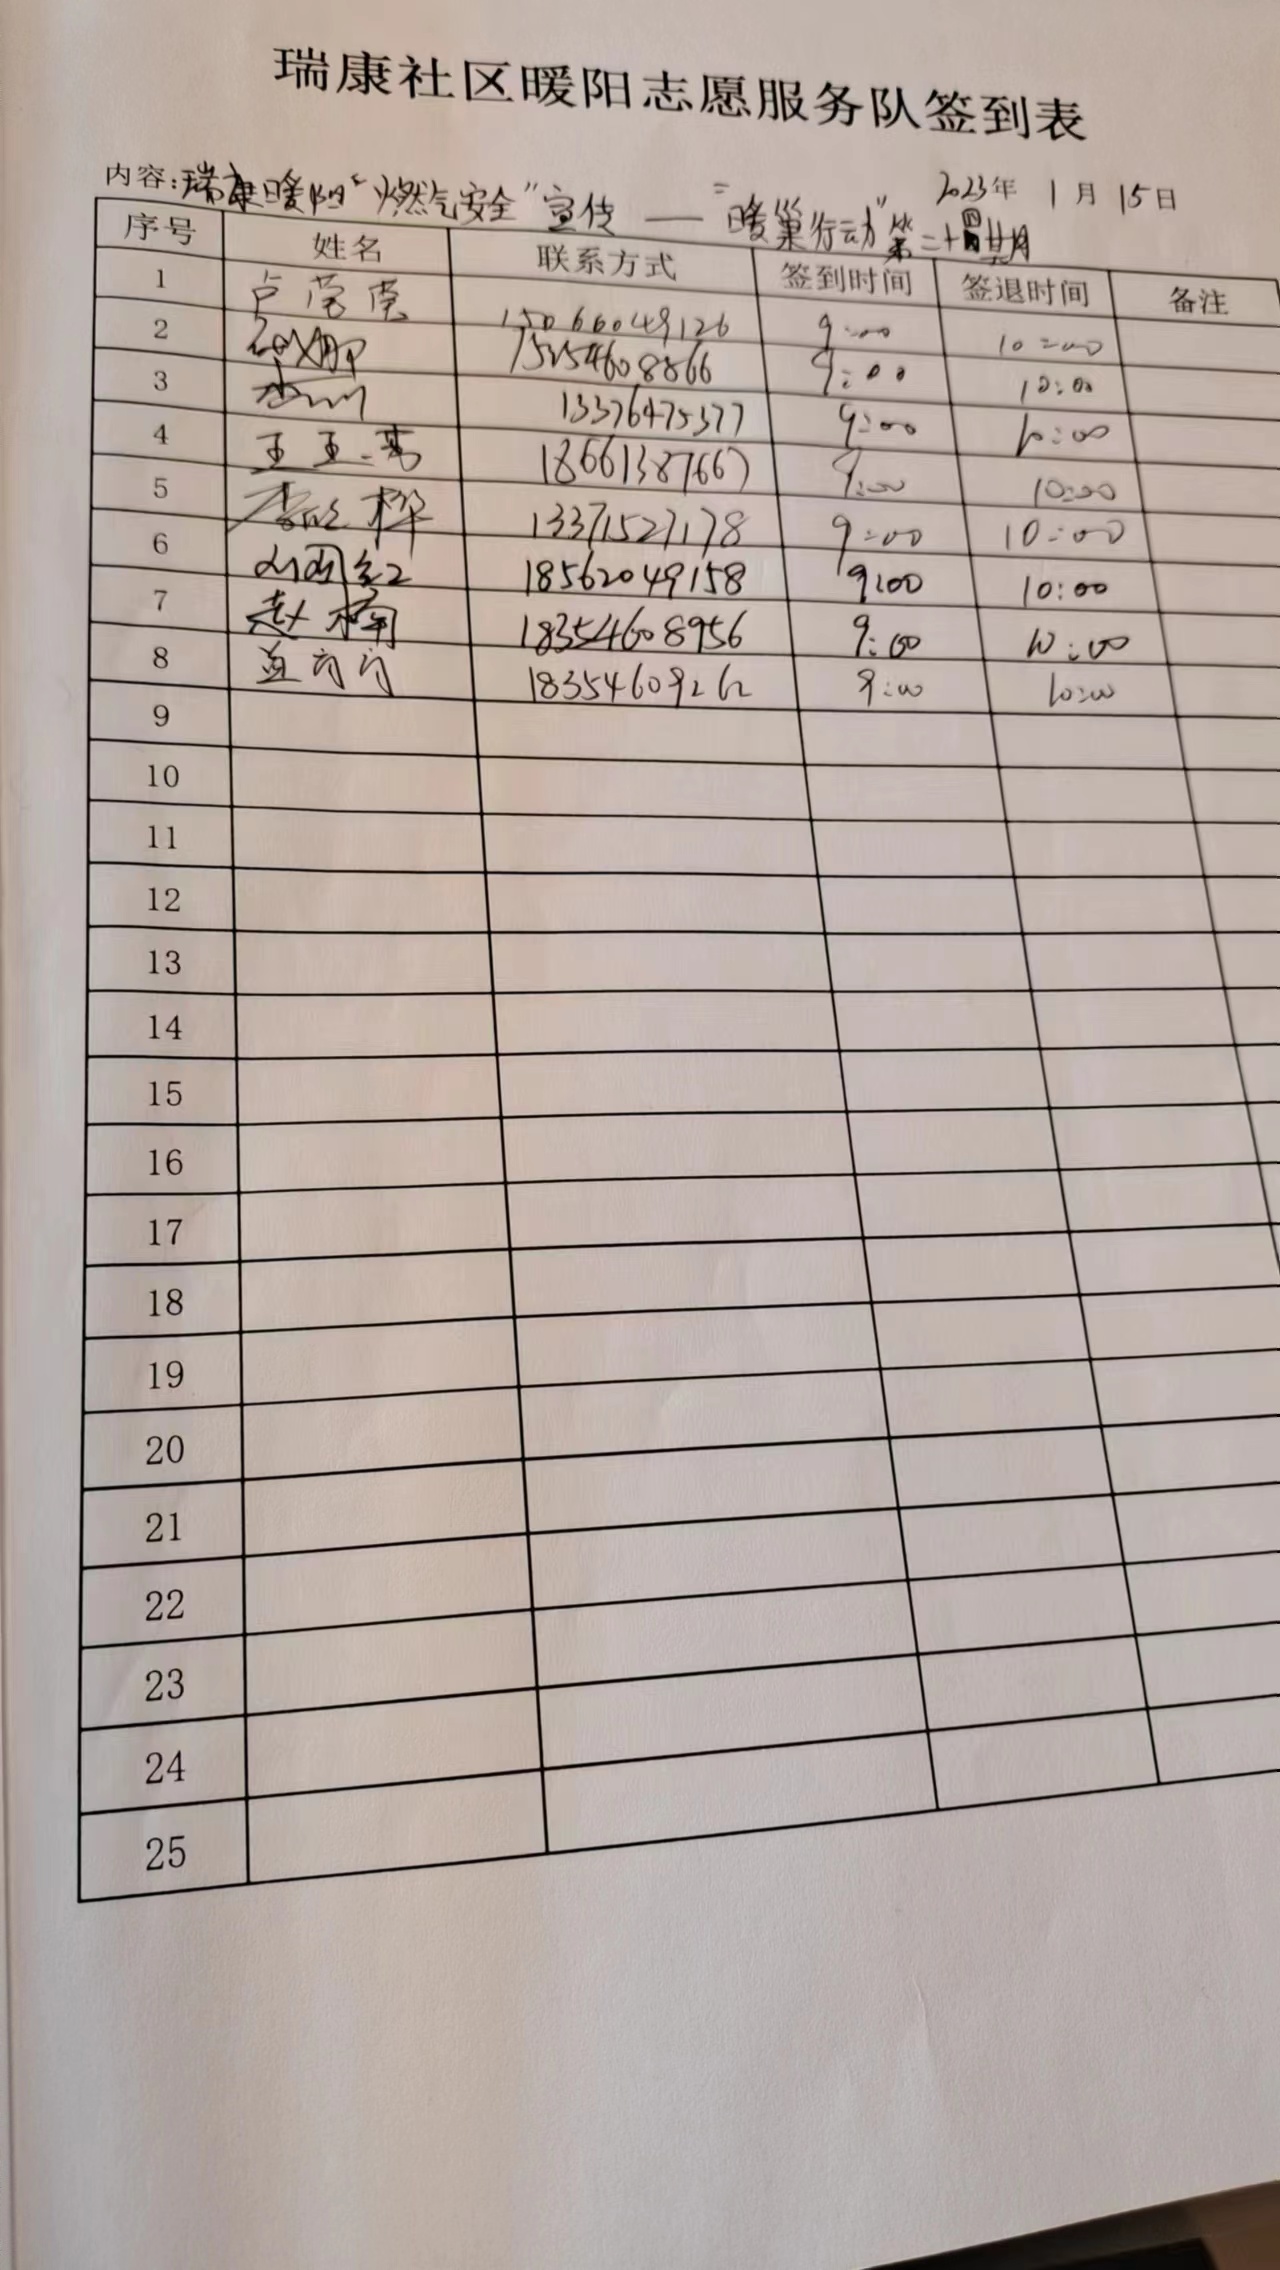 瑞康社区暖阳志愿服务队签到表
内容:瑞康暖阳"燃气安全"宣传——"暖巢行动"第二十四期 2023年 1月 15日
序号 姓名 联系方式 签到时间 签退时间 备注
1 卢莹莹 15066049126 9:00 10:00
2 15254608866 9:00 10:00
3 13376475377 9:00 10:00
4 王玉 18661387667 9:00 10:00
5 李 梓 13371527178 9:00 10:00
6 红 18562049158 9:00 10:00
7 赵楠 18354608956 9:00 10:00
8 18354609262 9:00 10:00
9
10
11
12
13
14
15
16
17
18
19
20
21
22
23
24
25